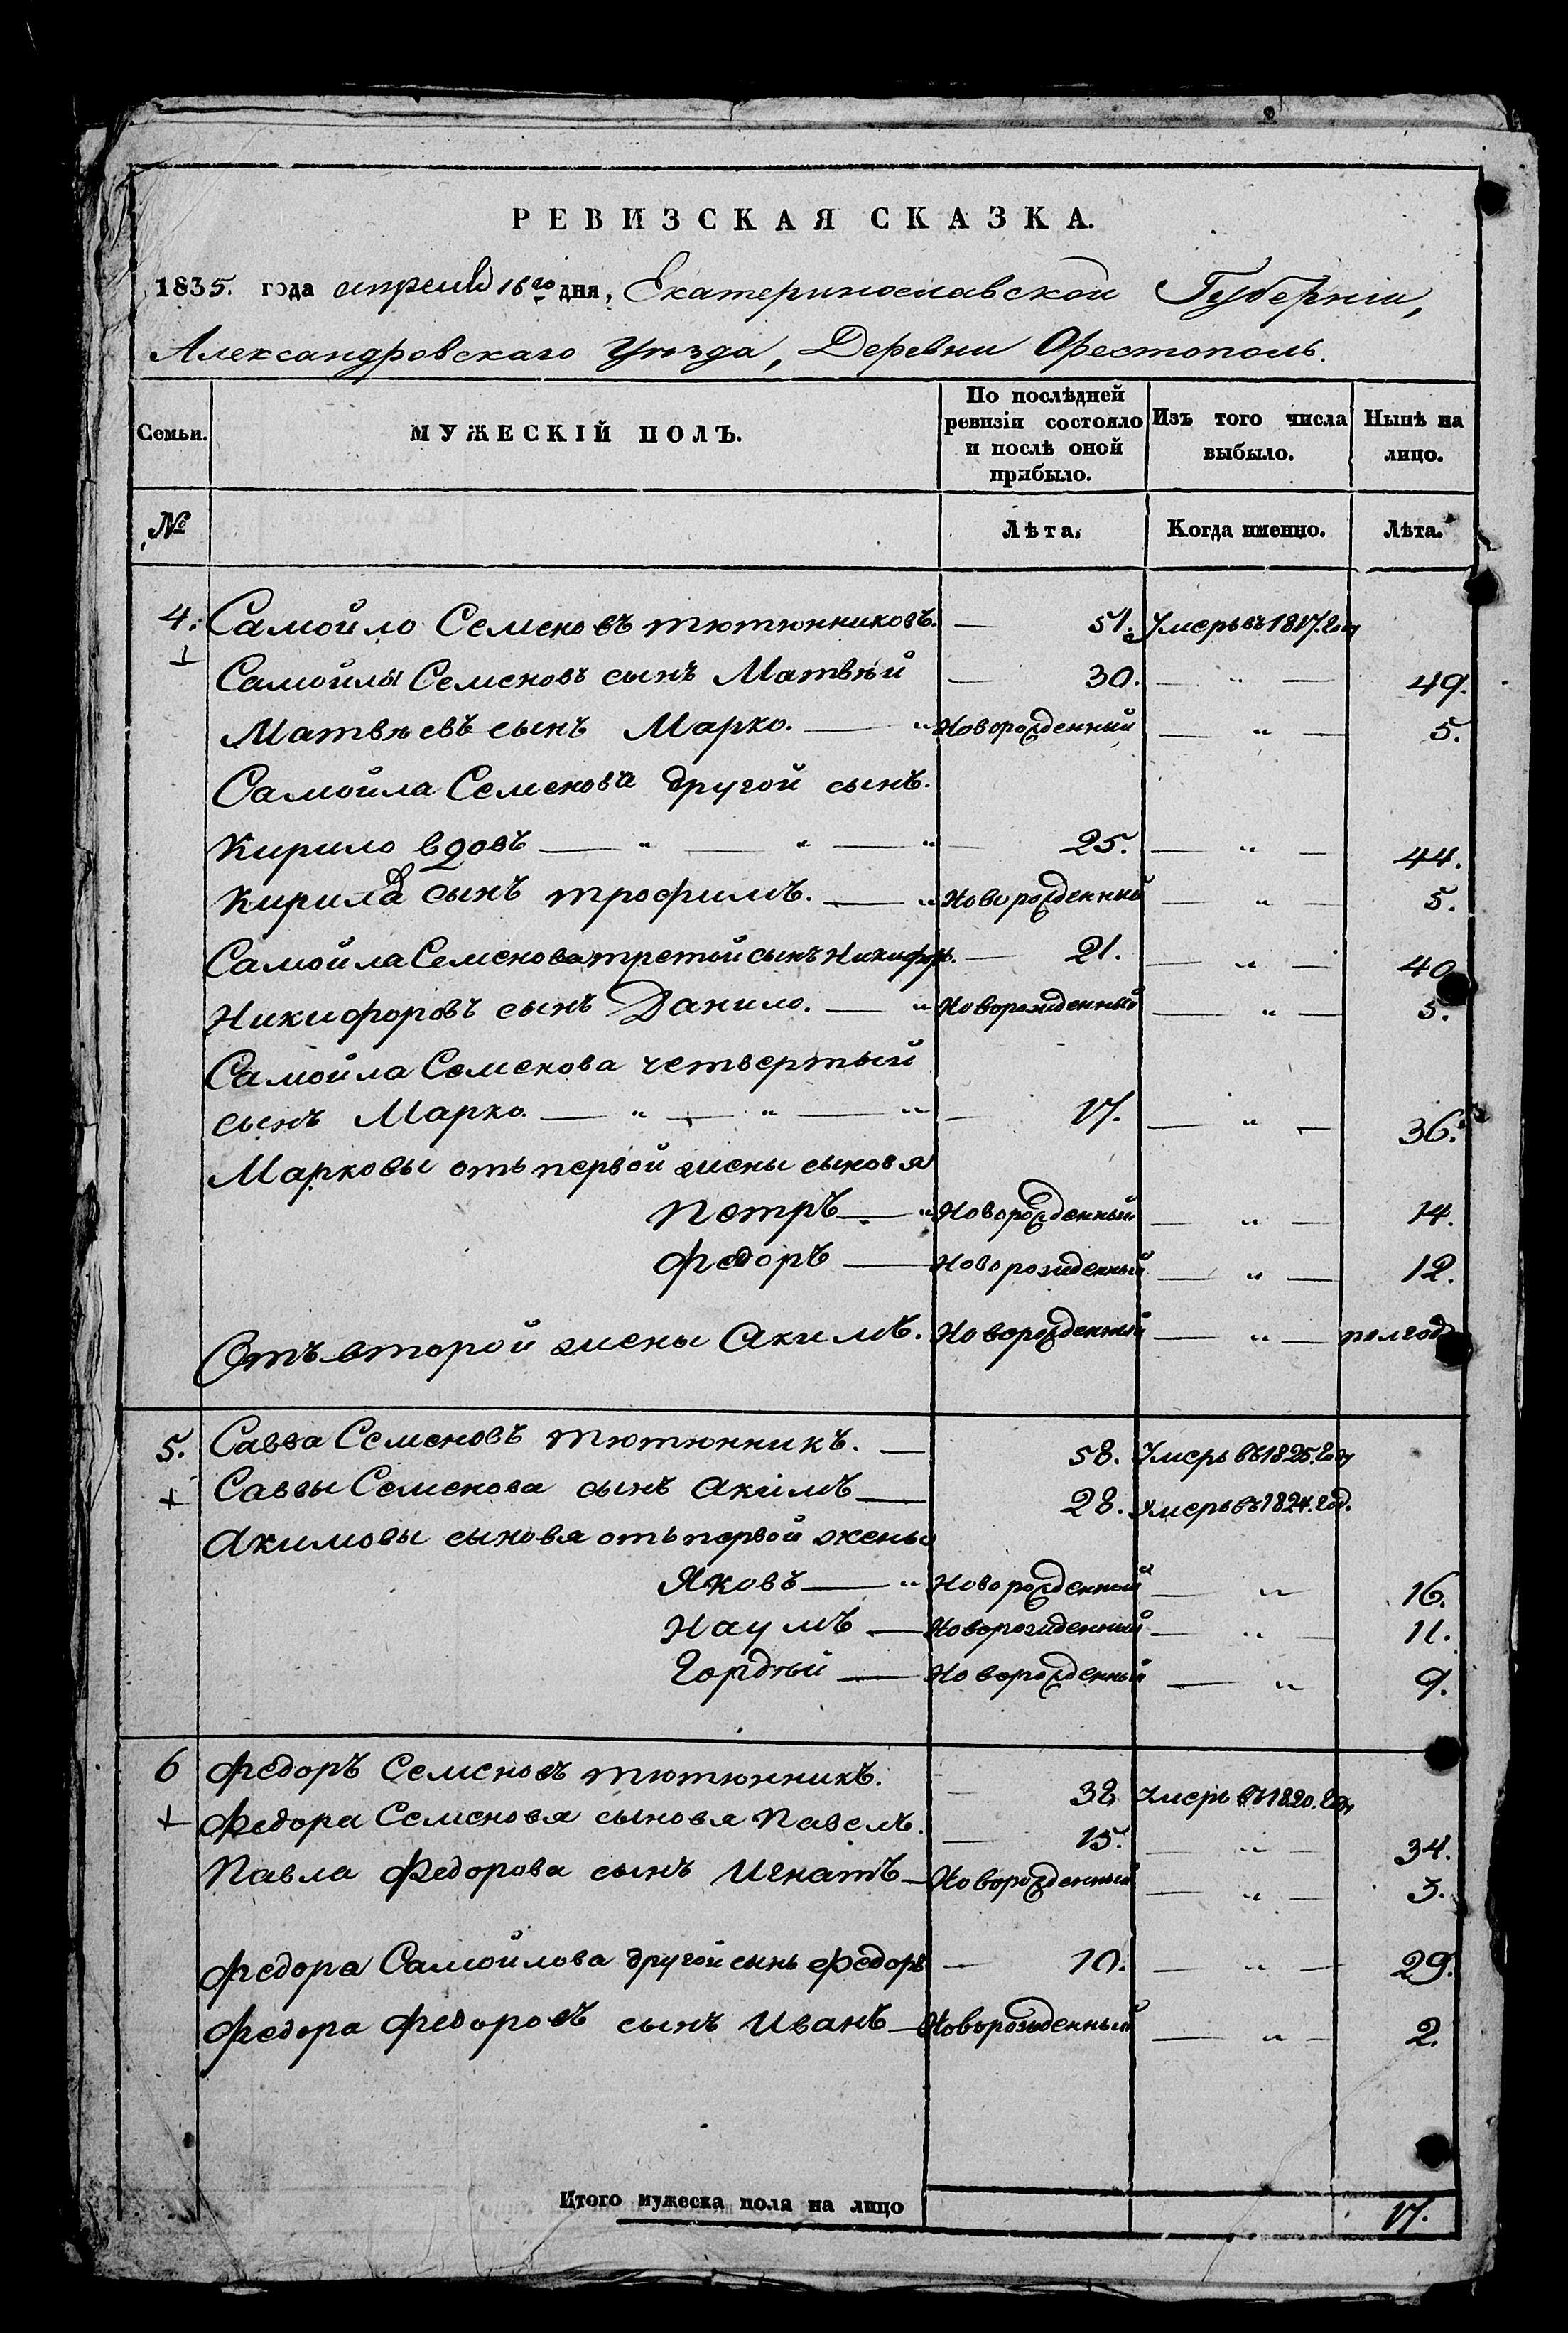 РЕВИЗСКАЯ СКАЗКА.
1835. года апреля 16го дня, Екатеринославской Губерніи,
Александровскаго Уѣзда, Деревни Орестополь.
Семьи. МУЖЕСКІЙ ПОЛЪ. По послѣдней ревизіи состояло и послѣ оной прибыло. Изъ того числа выбыло. Нынѣ на лицо.
№ Лѣта. Когда именно. Лѣта.
4. Самойло Семеновъ тютюнниковъ. — 51. Умеръ въ 1817. году
Самойлы Семеновъ сынъ Матвѣй — 30. — " — 49.
Матвѣевъ сынъ Марко. — " Новорожденный — " — 5.
Самойла Семенова другой сынъ.
Кирило вдовъ — " — " — " — 25. — " — 44.
Кирила сынъ трофимъ. — " Новорожденный — " — 5.
Самойла Семенова третой сынъ Никифръ. — 21. — " — 40
Никифоровъ сынъ Данило. — " Новорожденный — " — 5.
Самойла Семенова четвертый
сынъ Марко. — " — " — " — 17. — " — 36.
Марковы отъ первой жены сыновя
Петръ — " Новорожденный — " — 14.
Федоръ — Новорожденный — " — 12.
Отъ второй жены Акимъ. Новорожденный — " — полгод
5. Савва Семеновъ тютюнникъ. — 58. Умеръ въ 1825. году
+ Саввы Семенова сынъ Акимъ — 28. Умеръ въ 1824. год.
Акимовы сыновя отъ первой жены
Яковъ — " Новорожденной — " 16.
Наумъ — Новорожденный — " — 11.
Гордѣй — Новорожденный — " 9.
6 Федоръ Семеновъ тютюнникъ. — 38 Умеръ въ 1820. году
+ Федора Семеновя сыновя Павелъ. — 15. — " — 34.
Павла Федорова сынъ Игнатъ — Новорожденный — " — 3.
Федора Самойлова другой сынъ Федоръ — 10. — " — 29.
Федора Федоровъ сынъ Иванъ — Новорожденный — " — 2.
Итого мужеска пола на лицо 17.